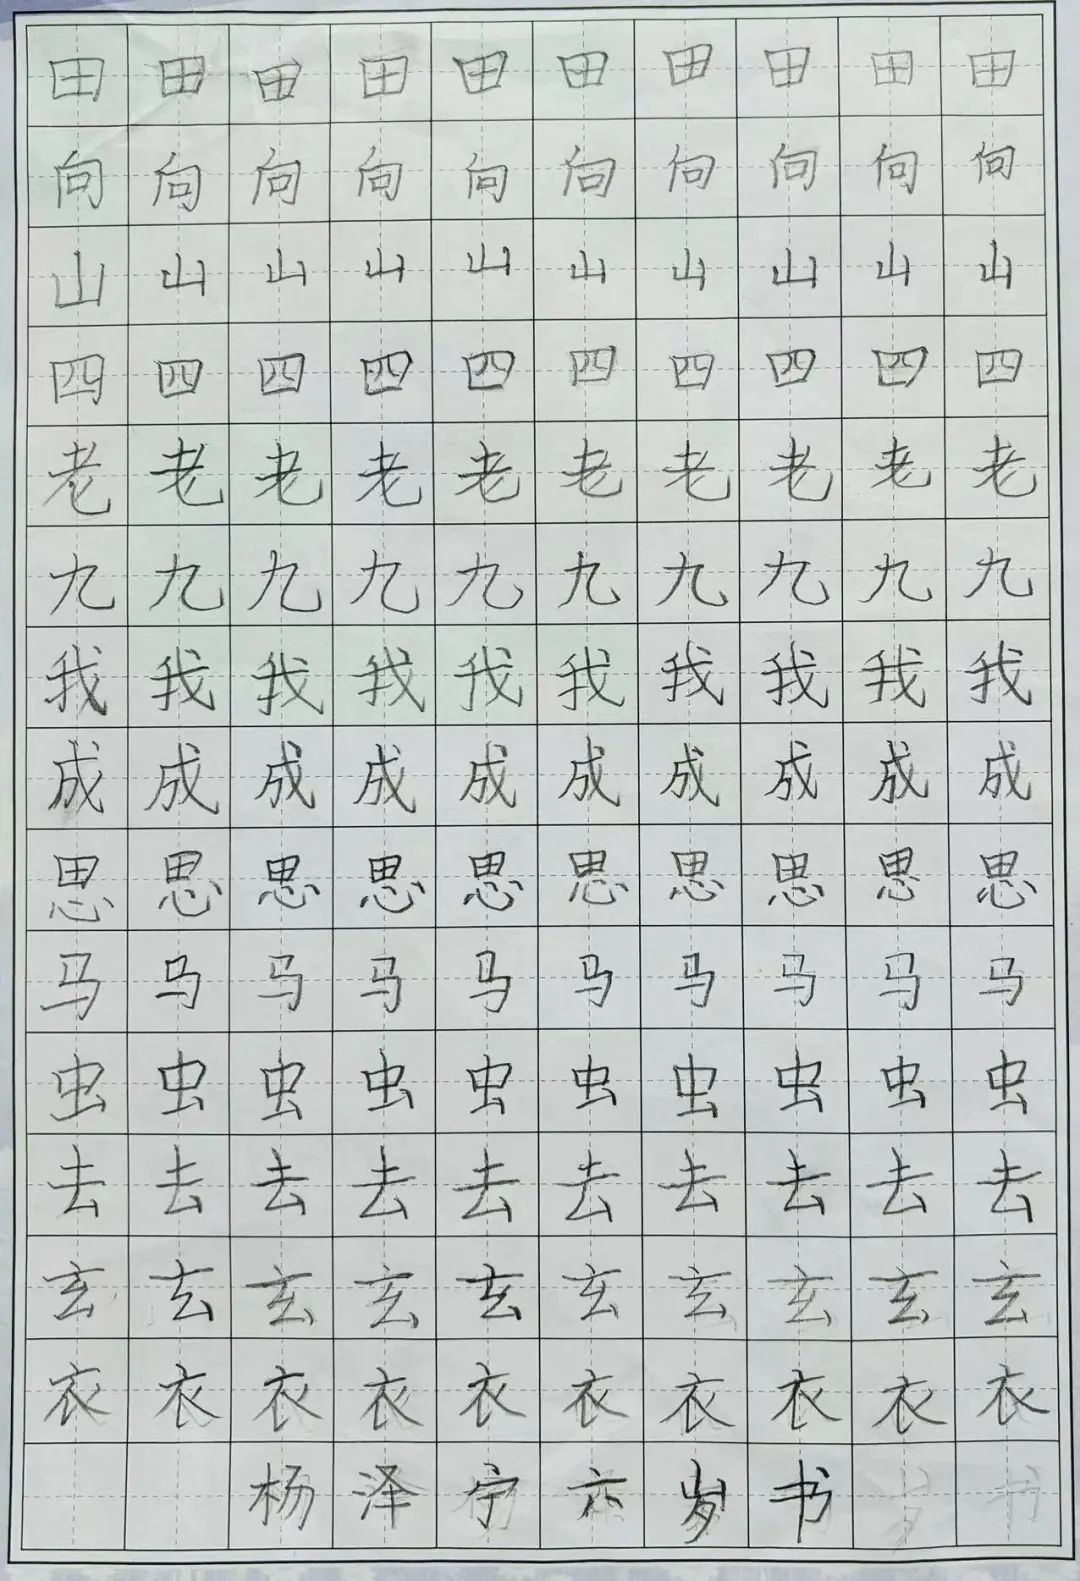 田田田田田田田田田田
向向向向向向向向向向
山山山山山山山山山山
四四四四四四四四四四
老老老老老老老老老老
九九九九九九九九九九
我我我我我我我我我我
成成成成成成成成成成
思思思思思思思思思思
马马马马马马马马马马
虫虫虫虫虫虫虫虫虫虫
去去去去去去去去去去
玄玄玄玄玄玄玄玄玄玄
衣衣衣衣衣衣衣衣衣衣
杨泽宁六岁书岁书